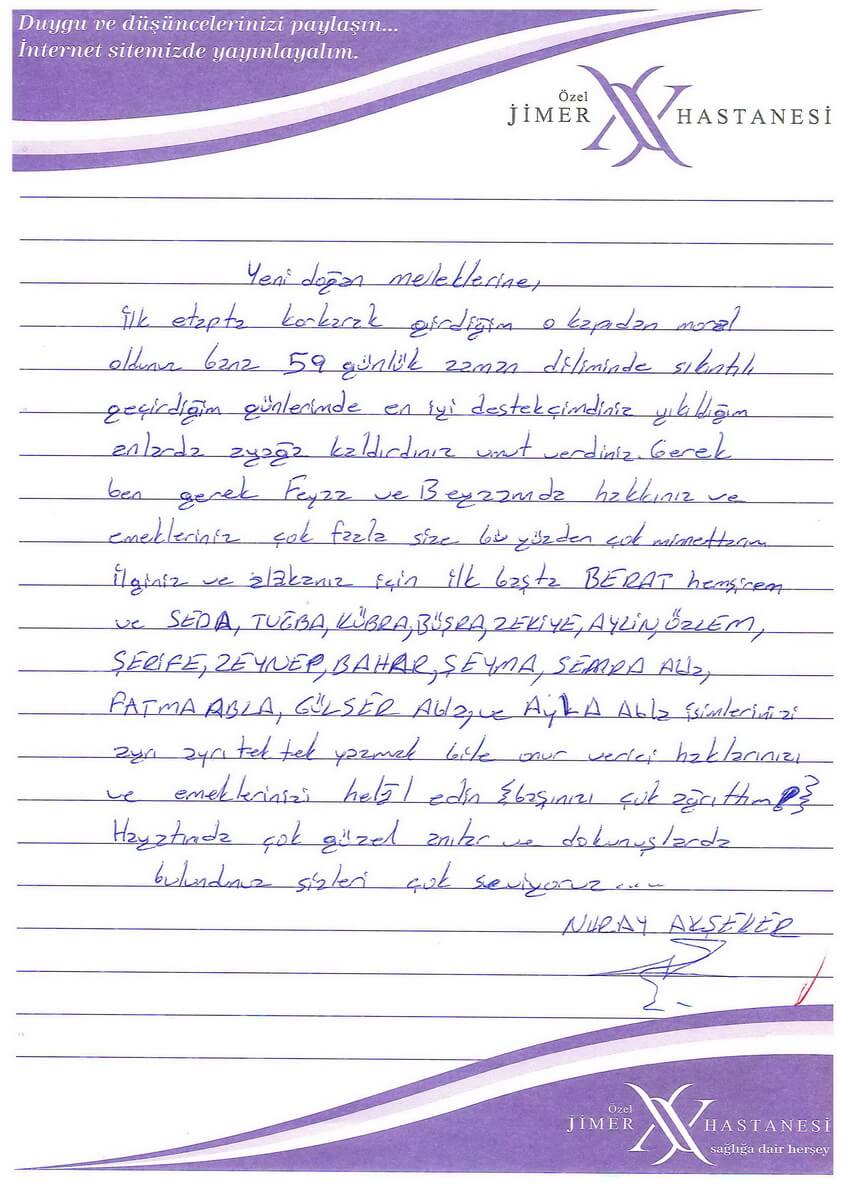 Duygu ve düşüncelerinizi paylaşın...
İnternet sitemizde yayınlayalım.
Özel
JİMER HASTANESİ
Yeni doğan melleklerine,
ilk etapta korkarak girdiğim o kapıdan moral
oldunuz bana 59 günlük zaman diliminde sıkıntılı
geçirdiğim günlerimde en iyi destekçimdiniz yıkıldığım
anlarda ayağa kaldırdınız umut verdiniz. Gerek
ben gerek Feyza ve Beyzamda hakkınız ve
emekleriniz çok fazla size bu yüzden çok minnettarım
ilginiz ve alakanız için ilk başta BERAT hemşirem
ve SEDA, TUĞBA, KÜBRA, BÜŞRA, ZEKİYE, AYLİN, ÖZLEM,
ŞERİFE, ZEYNEP, BAHAR, ŞEYMA, SEMRA Abla,
FATMA ABLA, GÜLSER Abla, ve AyLA Abla isimlerinizi
ayrı ayrı tek tek yazmak bile onur verici haklarınızı
ve emeklerinizi helal edin {başınızı çok ağrıttım}
Hayatımda çok güzel anılar ve dokunuşlarda
bulundunuz sizleri çok seviyoruz.....
NURAY AKŞEKER
Özel
JİMER HASTANESİ
sağlığa dair herşey